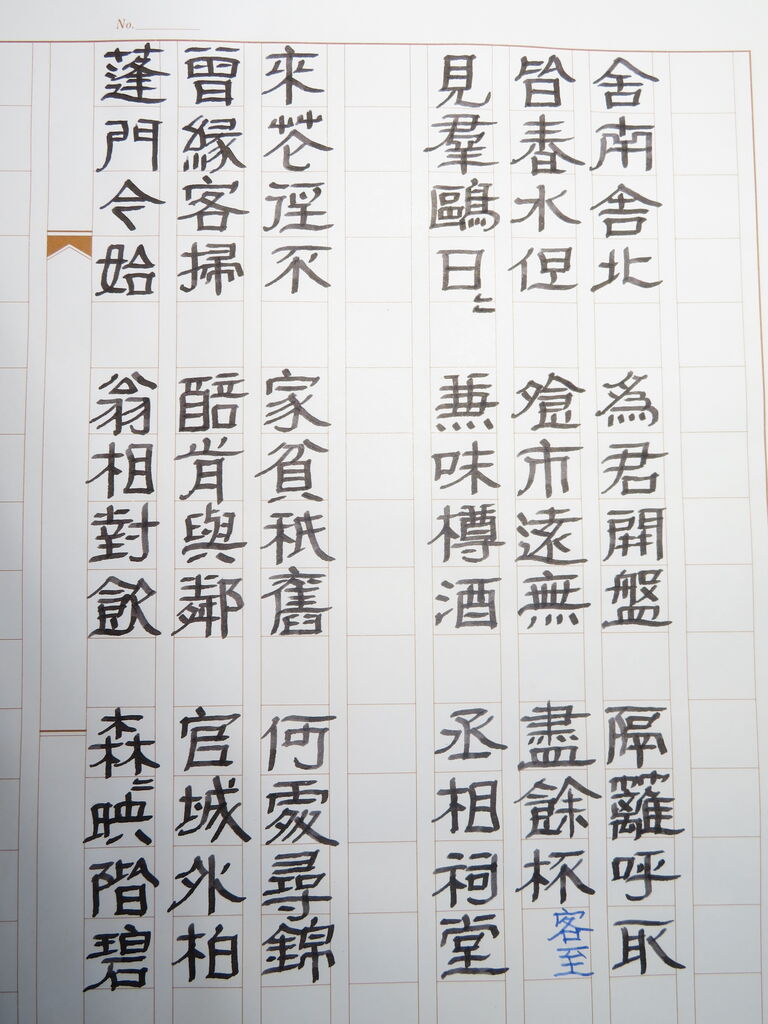 No.
舍南舍北
皆春水但
見羣鷗日々
來花徑不
曾緣客掃
蓬門今始
爲君開盤
飧市遠無
兼味樽酒
家貧秖舊
醅肯與鄰
翁相對飲
隔籬呼取
盡餘杯
客至
丞相祠堂
何處尋錦
官城外柏
森々映階碧